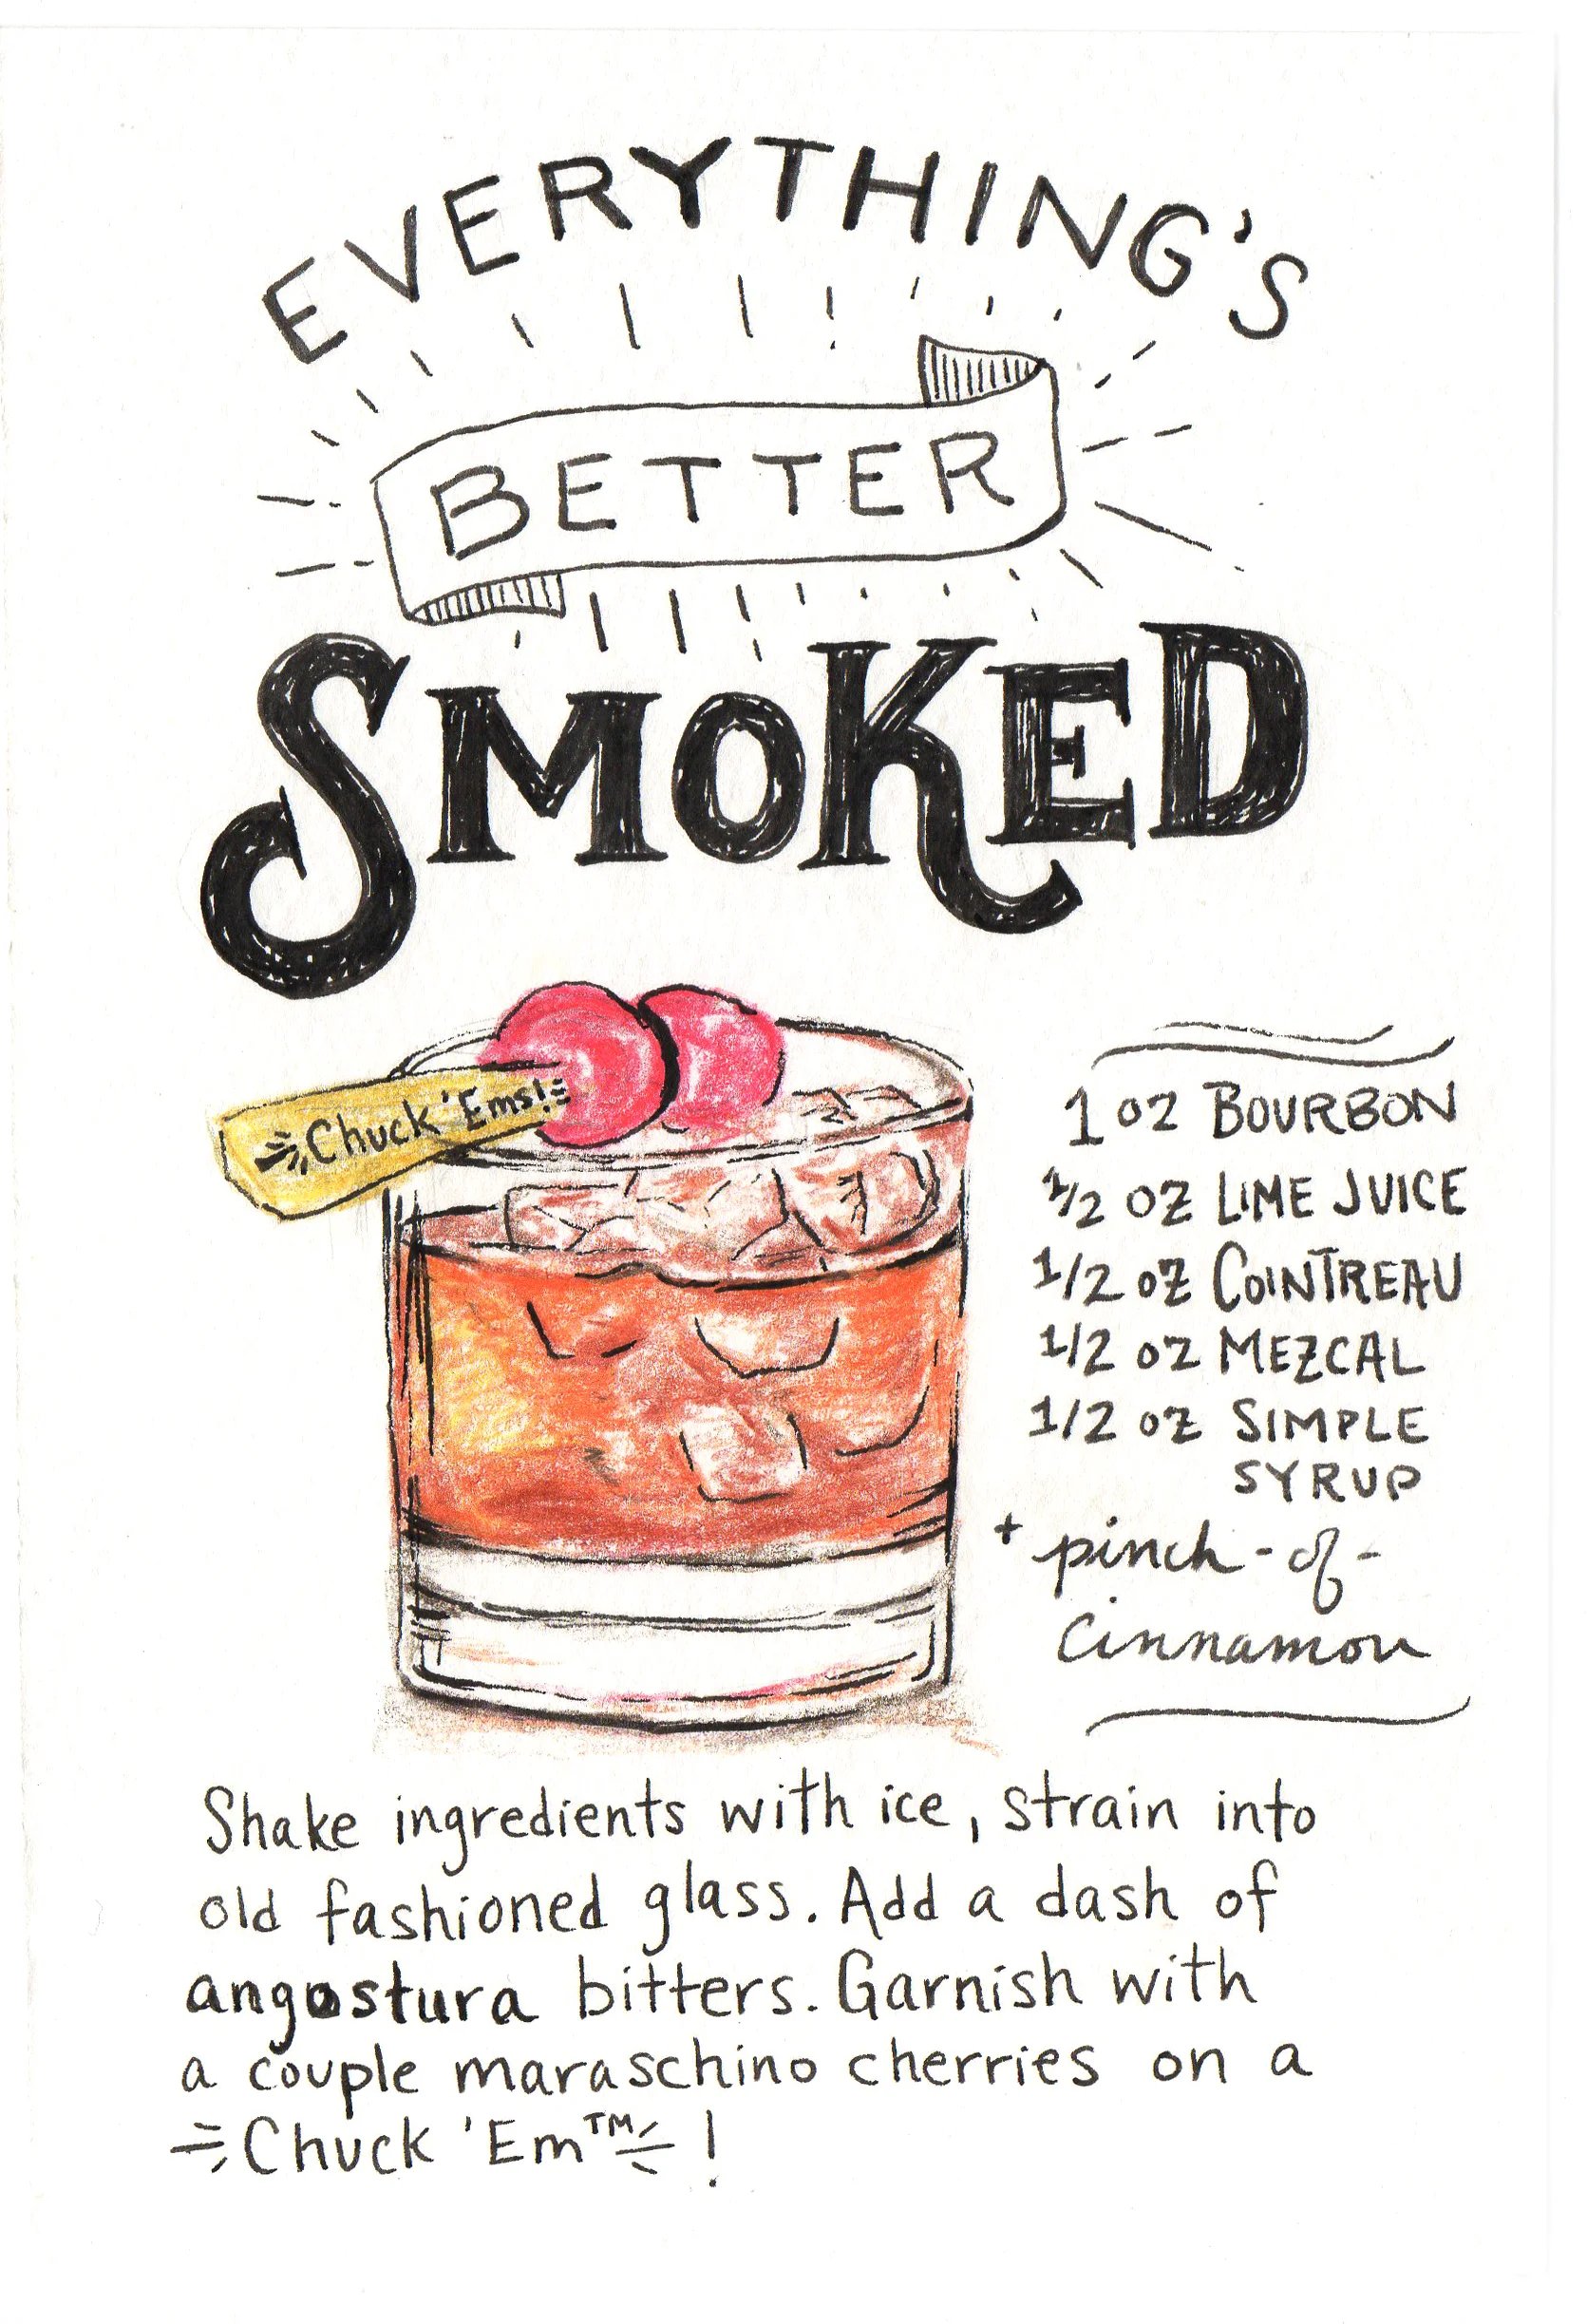 EVERYTHING'S
BETTER
SMOKED
Chuck 'Ems!
1 oz BOURBON
1/2 oz LIME JUICE
1/2 oz COINTREAU
1/2 oz MEZCAL
1/2 oz SIMPLE
SYRUP
+ pinch-of-
cinnamon
Shake ingredients with ice, strain into
old fashioned glass. Add a dash of
angostura bitters. Garnish with
a couple maraschino cherries on a
Chuck 'Em™!